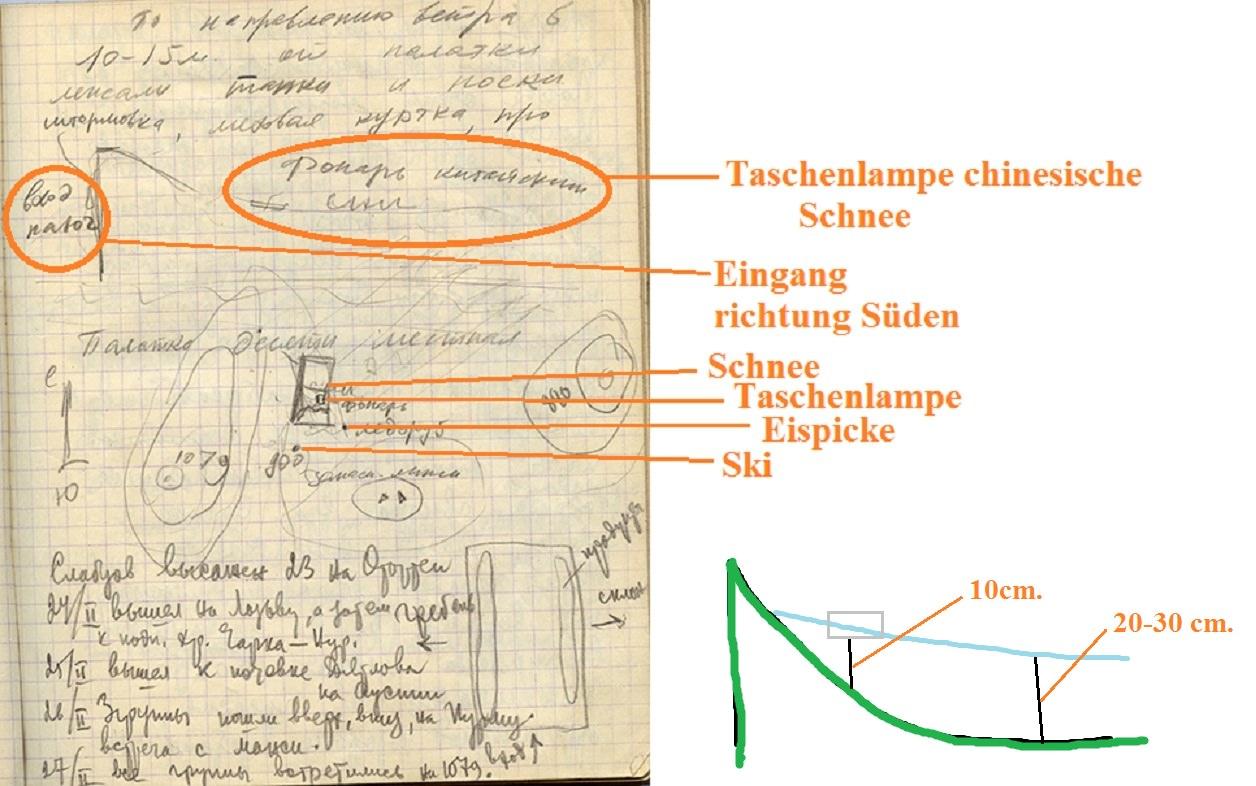 По направлению ветра в
10-15м. от палатки
лежали тапки и носки
штормовка, меховая куртка, про
Фонарь китайский
вход
Taschenlampe chinesische
Schnee
Eingang
richtung Süden
Палатка десяти местная
Schnee
Taschenlampe
Eispicke
Ski
С
фонарь
ледоруб
880
1079
900
Ю
запасн. лыжи
Слабцов высажен 23 на Отортен
24/II вышел на Лозьву, а затем гребень
к подн. хр. Чарка-Нур.
25/II вышел к ночевке Дятлова
на Ауспии
26/II 3 группы пошли вверх, вниз, на Пурму.
встреча с манси.
27/II все группы встретились на 1079.
вход
продукты
склон
10cm.
20-30 cm.